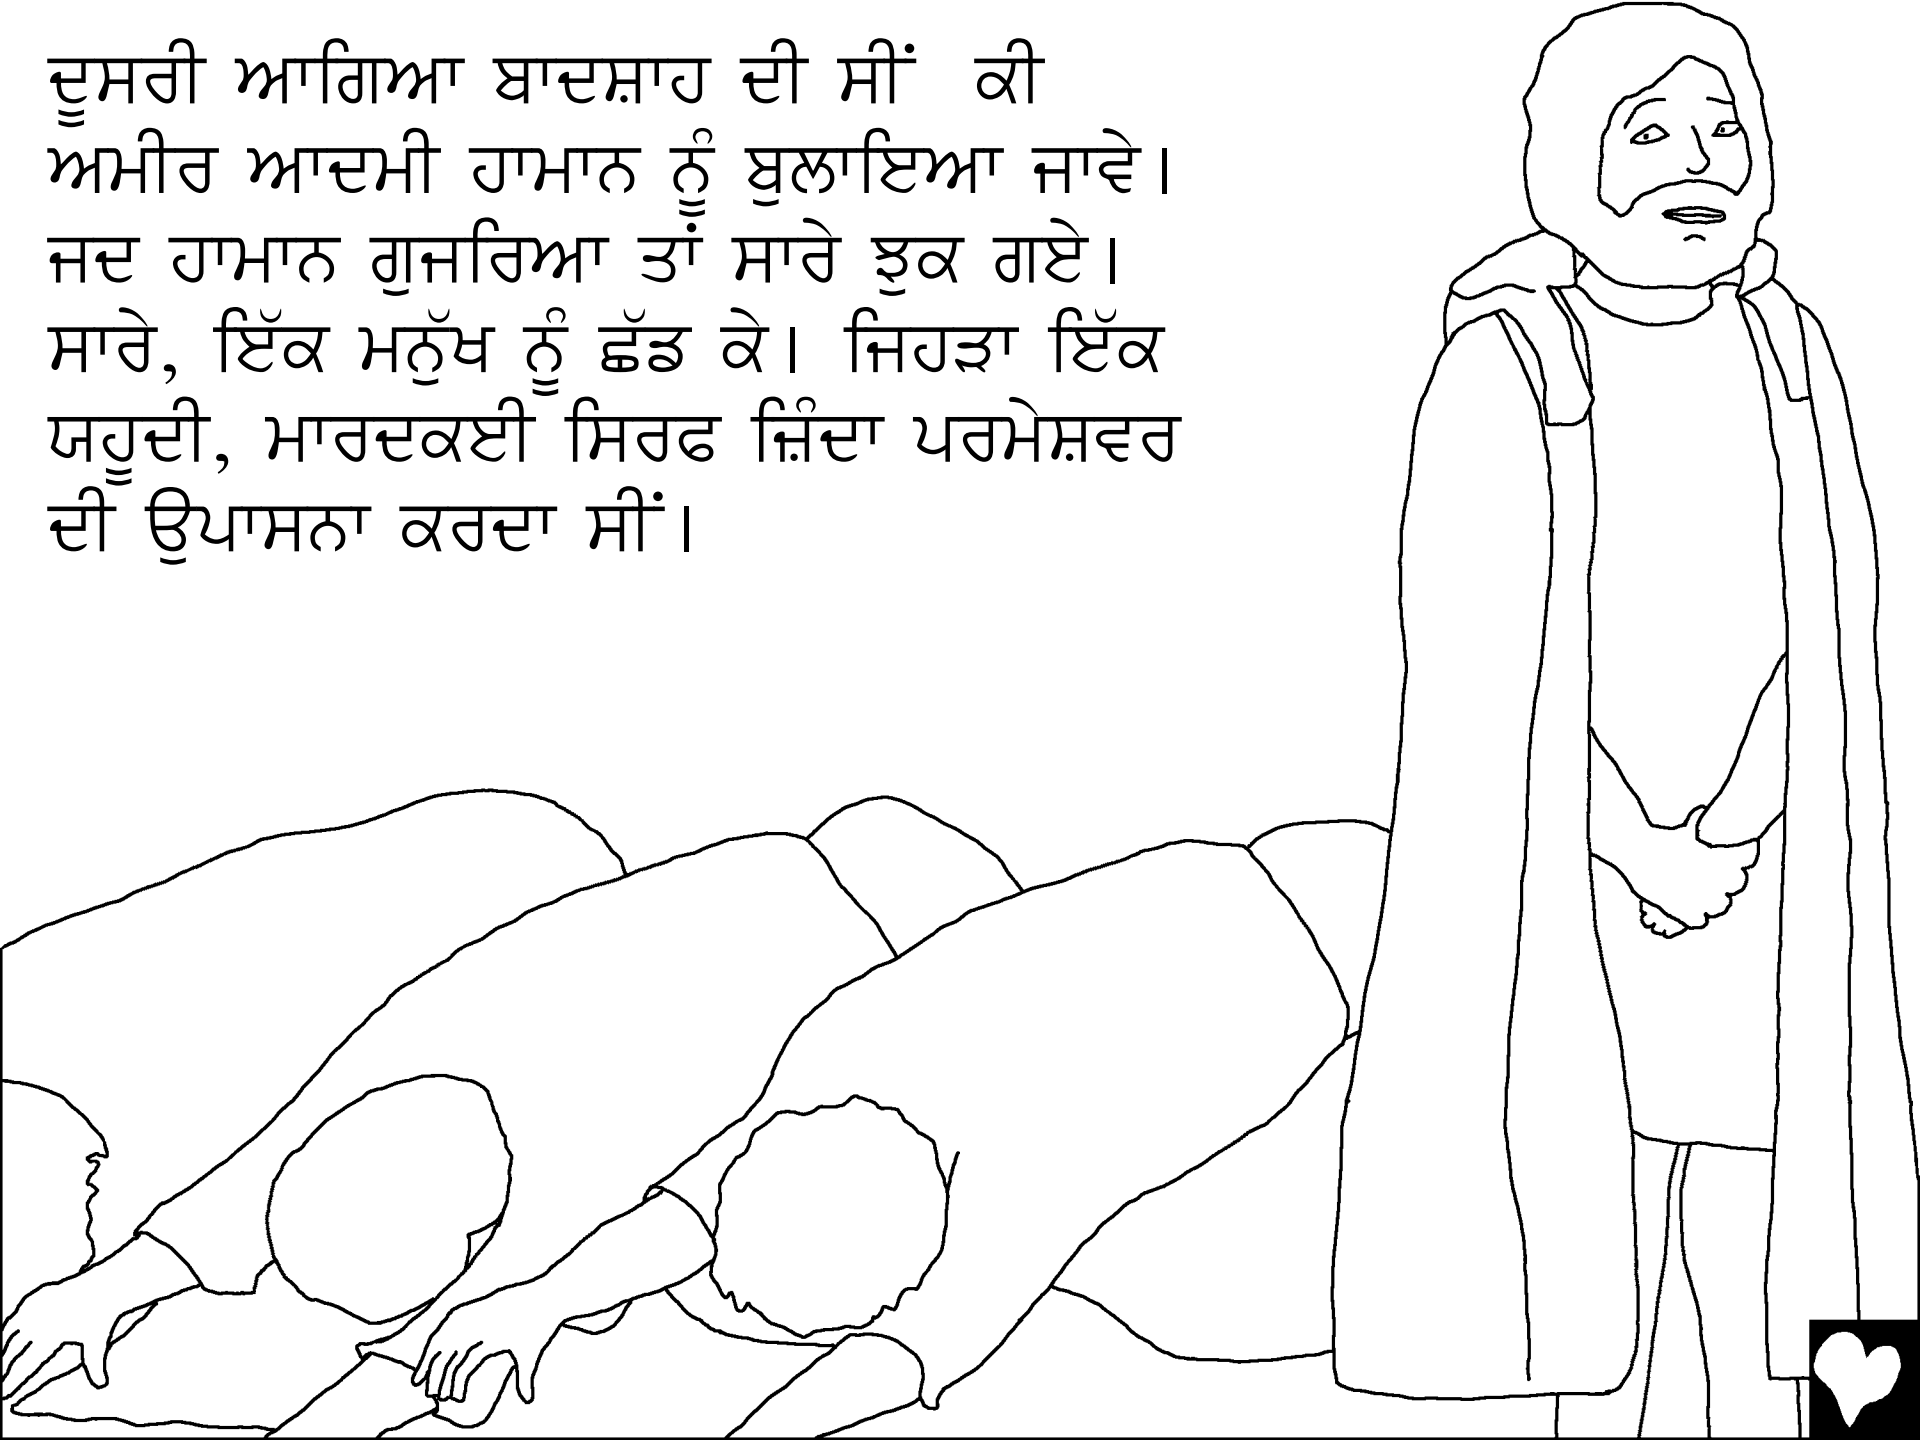 ਦੂਸਰੀ ਆਗਿਆ ਬਾਦਸ਼ਾਹ ਦੀ ਸੀਂ ਕੀ
ਅਮੀਰ ਆਦਮੀ ਹਾਮਾਨ ਨੂੰ ਬੁਲਾਇਆ ਜਾਵੇ।
ਜਦ ਹਾਮਾਨ ਗੁਜਰਿਆ ਤਾਂ ਸਾਰੇ ਝੁਕ ਗਏ।
ਸਾਰੇ, ਇੱਕ ਮਨੁੱਖ ਨੂੰ ਛੱਡ ਕੇ। ਜਿਹੜਾ ਇੱਕ
ਯਹੂਦੀ, ਮਾਰਦਕਈ ਸਿਰਫ ਜ਼ਿੰਦਾ ਪਰਮੇਸ਼ਵਰ
ਦੀ ਉਪਾਸਨਾ ਕਰਦਾ ਸੀਂ।